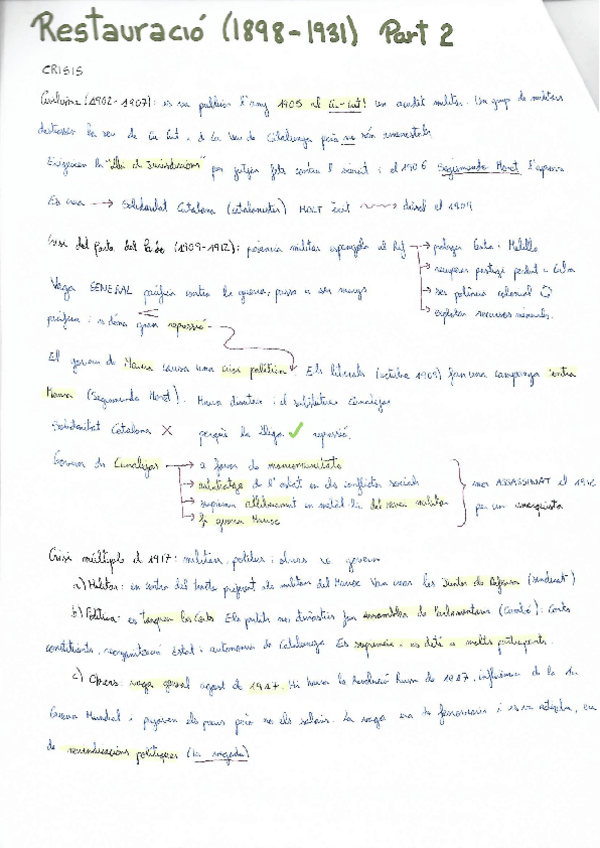 Restauració (1898-1931) Part 2
CRISIS
(1902-1907): es va publicar l'any 1905 al Cu-Cut! un acudit militar. Un grup de militars
la seu de Cu Cut i de la Veu de Catalunya però no són
Exigeixen la "llei de Jurisdiccions" per jutjar fets contra l'exèrcit i el 1906 Segismundo Moret l'aprova
Es crea → Solidaritat Catalana (catalanistes) MOLT èxit el 1909
Crisi del Pacte del Pardo (1909-1912): presència militar espanyola al Rif → protegir Ceuta i Melilla
→ recuperar prestigi perdut a Cuba
Vaga GENERAL pacífica contra la guerra, passa a ser menys → ser potència colonial
pacífica i dóna gran repressió → explotar recursos minerals.
El govern de Maura causa una crisi política. Els liberals (octubre 1909) fan una campanya contra
Maura (Segismundo Moret). Maura dimiteix i el substitueix Canalejas
Solidaritat Catalana X perquè la Lliga ✓ repressió.
Govern de Canalejas → a favor de
→ arbitratge de l'estat en els conflictes socials mor ASSASSINAT el 1912
→ suprimeix alliberament en metàl·lic del servei militar per un anarquista
→ guerra Marroc
Crisi múltiple el 1917: militars, polítics i obrers vs govern
a) Militar: en contra del tracte preferent als militars del Marroc. Van crear les Juntes de Defensa (sindicat)
b) Política: es tanquen les Corts. Els partits no dinàstics fan assemblea de Parlamentaris (Cambó): Corts
constituents, reorganització Estat i autonomia de Catalunya. Es suprimeix i es deté a molts participants.
c) Obrers: vaga general agost de 1917. Hi havia la Revolució Russa de 1917, influència de la 1a
Guerra Mundial i pujaven els preus però no els salaris. La vaga era de ferroviaris i
de reivindicacions polítiques (la vagada)